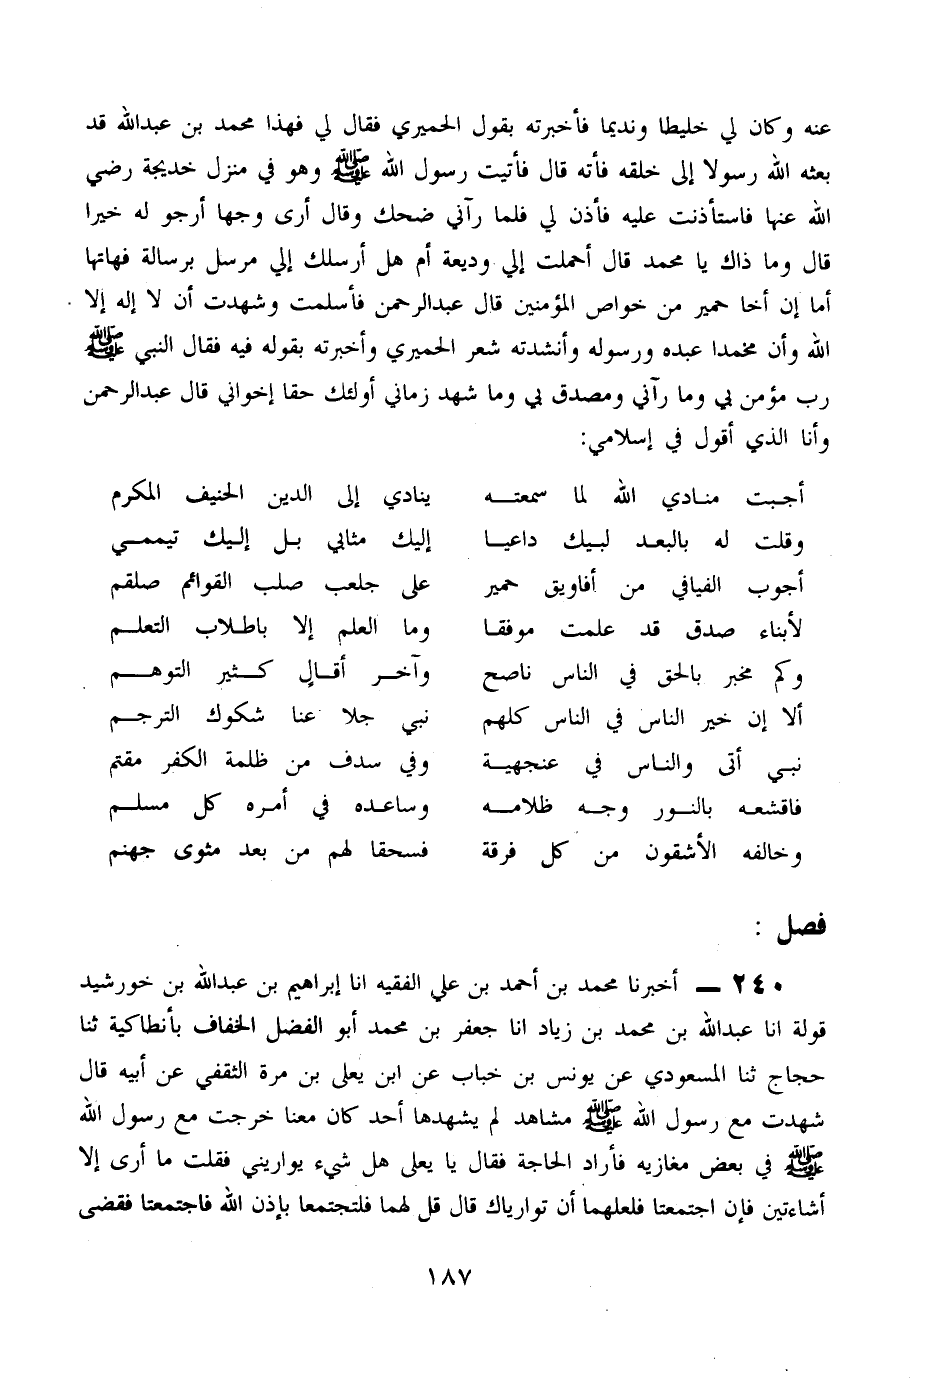 عنه وكان لي خليطا ونديما فأخبرته بقول الحميري فقال لي فهذا محمد بن عبدالله قد
بعثه الله رسولا إلى خلقه فأته قال فأتيت رسول الله ﷺ وهو في منزل خديجة رضي
الله عنها فاستأذنت عليه فأذن لي فلما رآني ضحك وقال أرى وجها أرجو له خيرا
قال وما ذاك يا محمد قال أحملت إلي وديعة أم هل أرسلك إلي مرسل برسالة فهاتها
أما إن أخا حمير من خواص المؤمنين قال عبدالرحمن فأسلمت وشهدت أن لا إله إلا
الله وأن محمدا عبده ورسوله وأنشدته شعر الحميري وأخبرته بقوله فيه فقال النبي ﷺ
رب مؤمن بي وما رآني ومصدق بي وما شهد زماني أولئك حقا إخواني قال عبدالرحمن
وأنا الذي أقول في إسلامي:
أجبت منادي الله لما سمعته ينادي إلى الدين الحنيف المكرم
وقلت له بالبعد لبيك داعيا إليك مثابي بل إليك تيممي
أجوب الفيافي من أفاويق حمير على جلعب صلب القوائم صلقم
لأبناء صدق قد علمت موفقا وما العلم إلا باطلاب التعلم
وكم مخبر بالحق في الناس ناصح وآخر أقال كثير التوهم
ألا إن خير الناس في الناس كلهم نبي جلا عنا شكوك الترجم
نبي أتى والناس في عنجهية وفي سدف من ظلمة الكفر مقتم
فاقشعه بالنور وجه ظلامه وساعده في أمره كل مسلم
وخالفه الأشقون من كل فرقة فسحقا لهم من بعد مثوى جهنم
فصل :
٢٤٠ — أخبرنا محمد بن أحمد بن علي الفقيه انا إبراهيم بن عبدالله بن خورشيد
قولة انا عبدالله بن محمد بن زياد انا جعفر بن محمد أبو الفضل الخفاف بأنطاكية ثنا
حجاج ثنا المسعودي عن يونس بن خباب عن ابن يعلى بن مرة الثقفي عن أبيه قال
شهدت مع رسول الله ﷺ مشاهد لم يشهدها أحد كان معنا خرجت مع رسول الله
ﷺ في بعض مغازيه فأراد الحاجة فقال يا يعلى هل شيء يواريني فقلت ما أرى إلا
أشاءتين فإن اجتمعتا فلعلهما أن توارياك قال قل لهما فلتجتمعا بإذن الله فاجتمعتا فقضى
١٨٧